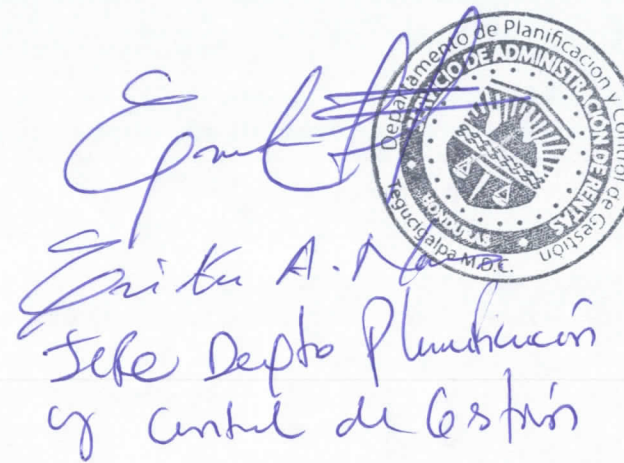 Departamento de Planificación y Control de Gestión
SERVICIO DE ADMINISTRACION DE RENTAS
HONDURAS
Tegucigalpa M.D.C.
Erika A.
Jefe Depto Planificación
y Control de Gestión